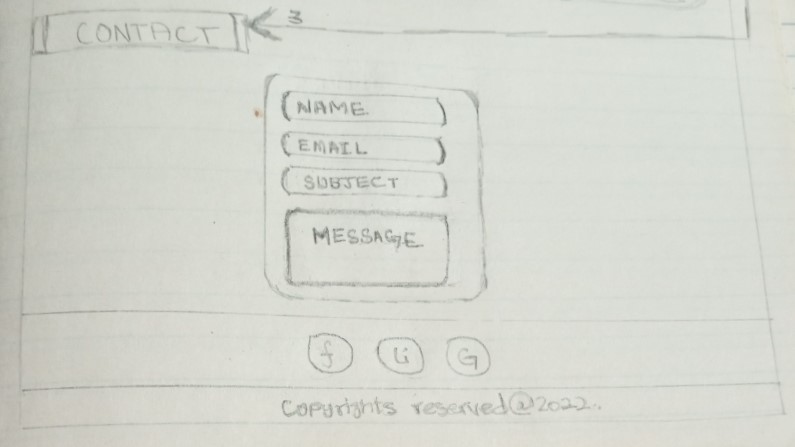 CONTACT 3
NAME.
EMAIL
SUBJECT
MESSAGE
f Li G
Copyrights reserved@2022.